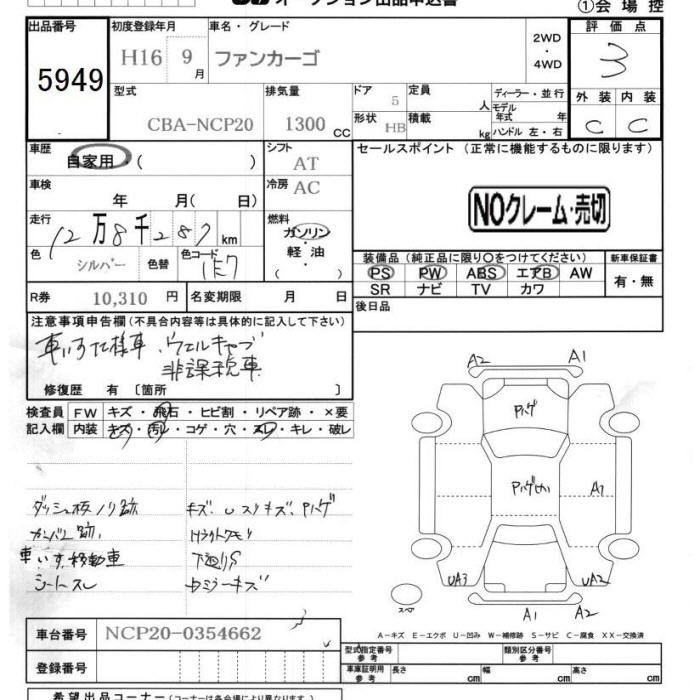 オークション出品申込書
①会場控
出品番号
5949
初度登録年月
H16 9月
車名・グレード
ファンカーゴ
2WD・4WD
評価点
3
型式
CBA-NCP20
排気量
1300CC
ドア
5
定員
人
ディーラー・並行
モデル年式 年
形状
HB
積載
kg
ハンドル 左・右
外装 内装
C C
車歴
自家用・( )
シフト
AT
セールスポイント (正常に機能するものに限ります)
車検
年 月( 日)
冷房
AC
NOクレーム・売切
走行
12万8千287km
燃料
ガソリン・軽油・( )
色
シルバー
色替
色コード
1E7
装備品 (純正品に限り○をつけてください)
新車保証書
PS PW ABS エアB AW
SR ナビ TV カワ
有・無
R券
10,310円
名変期限 月 日
後日品
注意事項申告欄 (不具合内容等は具体的に記入して下さい)
車いす仕様車、ウェルキャブ
非課税車
修復歴 有 [箇所 ]
検査員記入欄
FW キズ・飛石・ヒビ割・リペア跡・×要
内装 キズ・汚レ・コゲ・穴・スレ・キレ・破レ
ダッシュ板ノリ跡
キズ、Uスリキズ、Pハゲ
車いす移動車
下廻りS
シートスレ
A2 A1
Pハゲ
A1
UA3 UA2
スペア
A1 A2
A-キズ E-エクボ U-凹み W-補修跡 S-サビ C-腐食 XX-交換済
車台番号
NCP20-0354662
型式指定番号 参考
類別区分番号 参考
登録番号
車庫証明用 参考
長さ cm 幅 cm 高さ cm
希望出品コーナー (コーナーは各会場により異なります。)